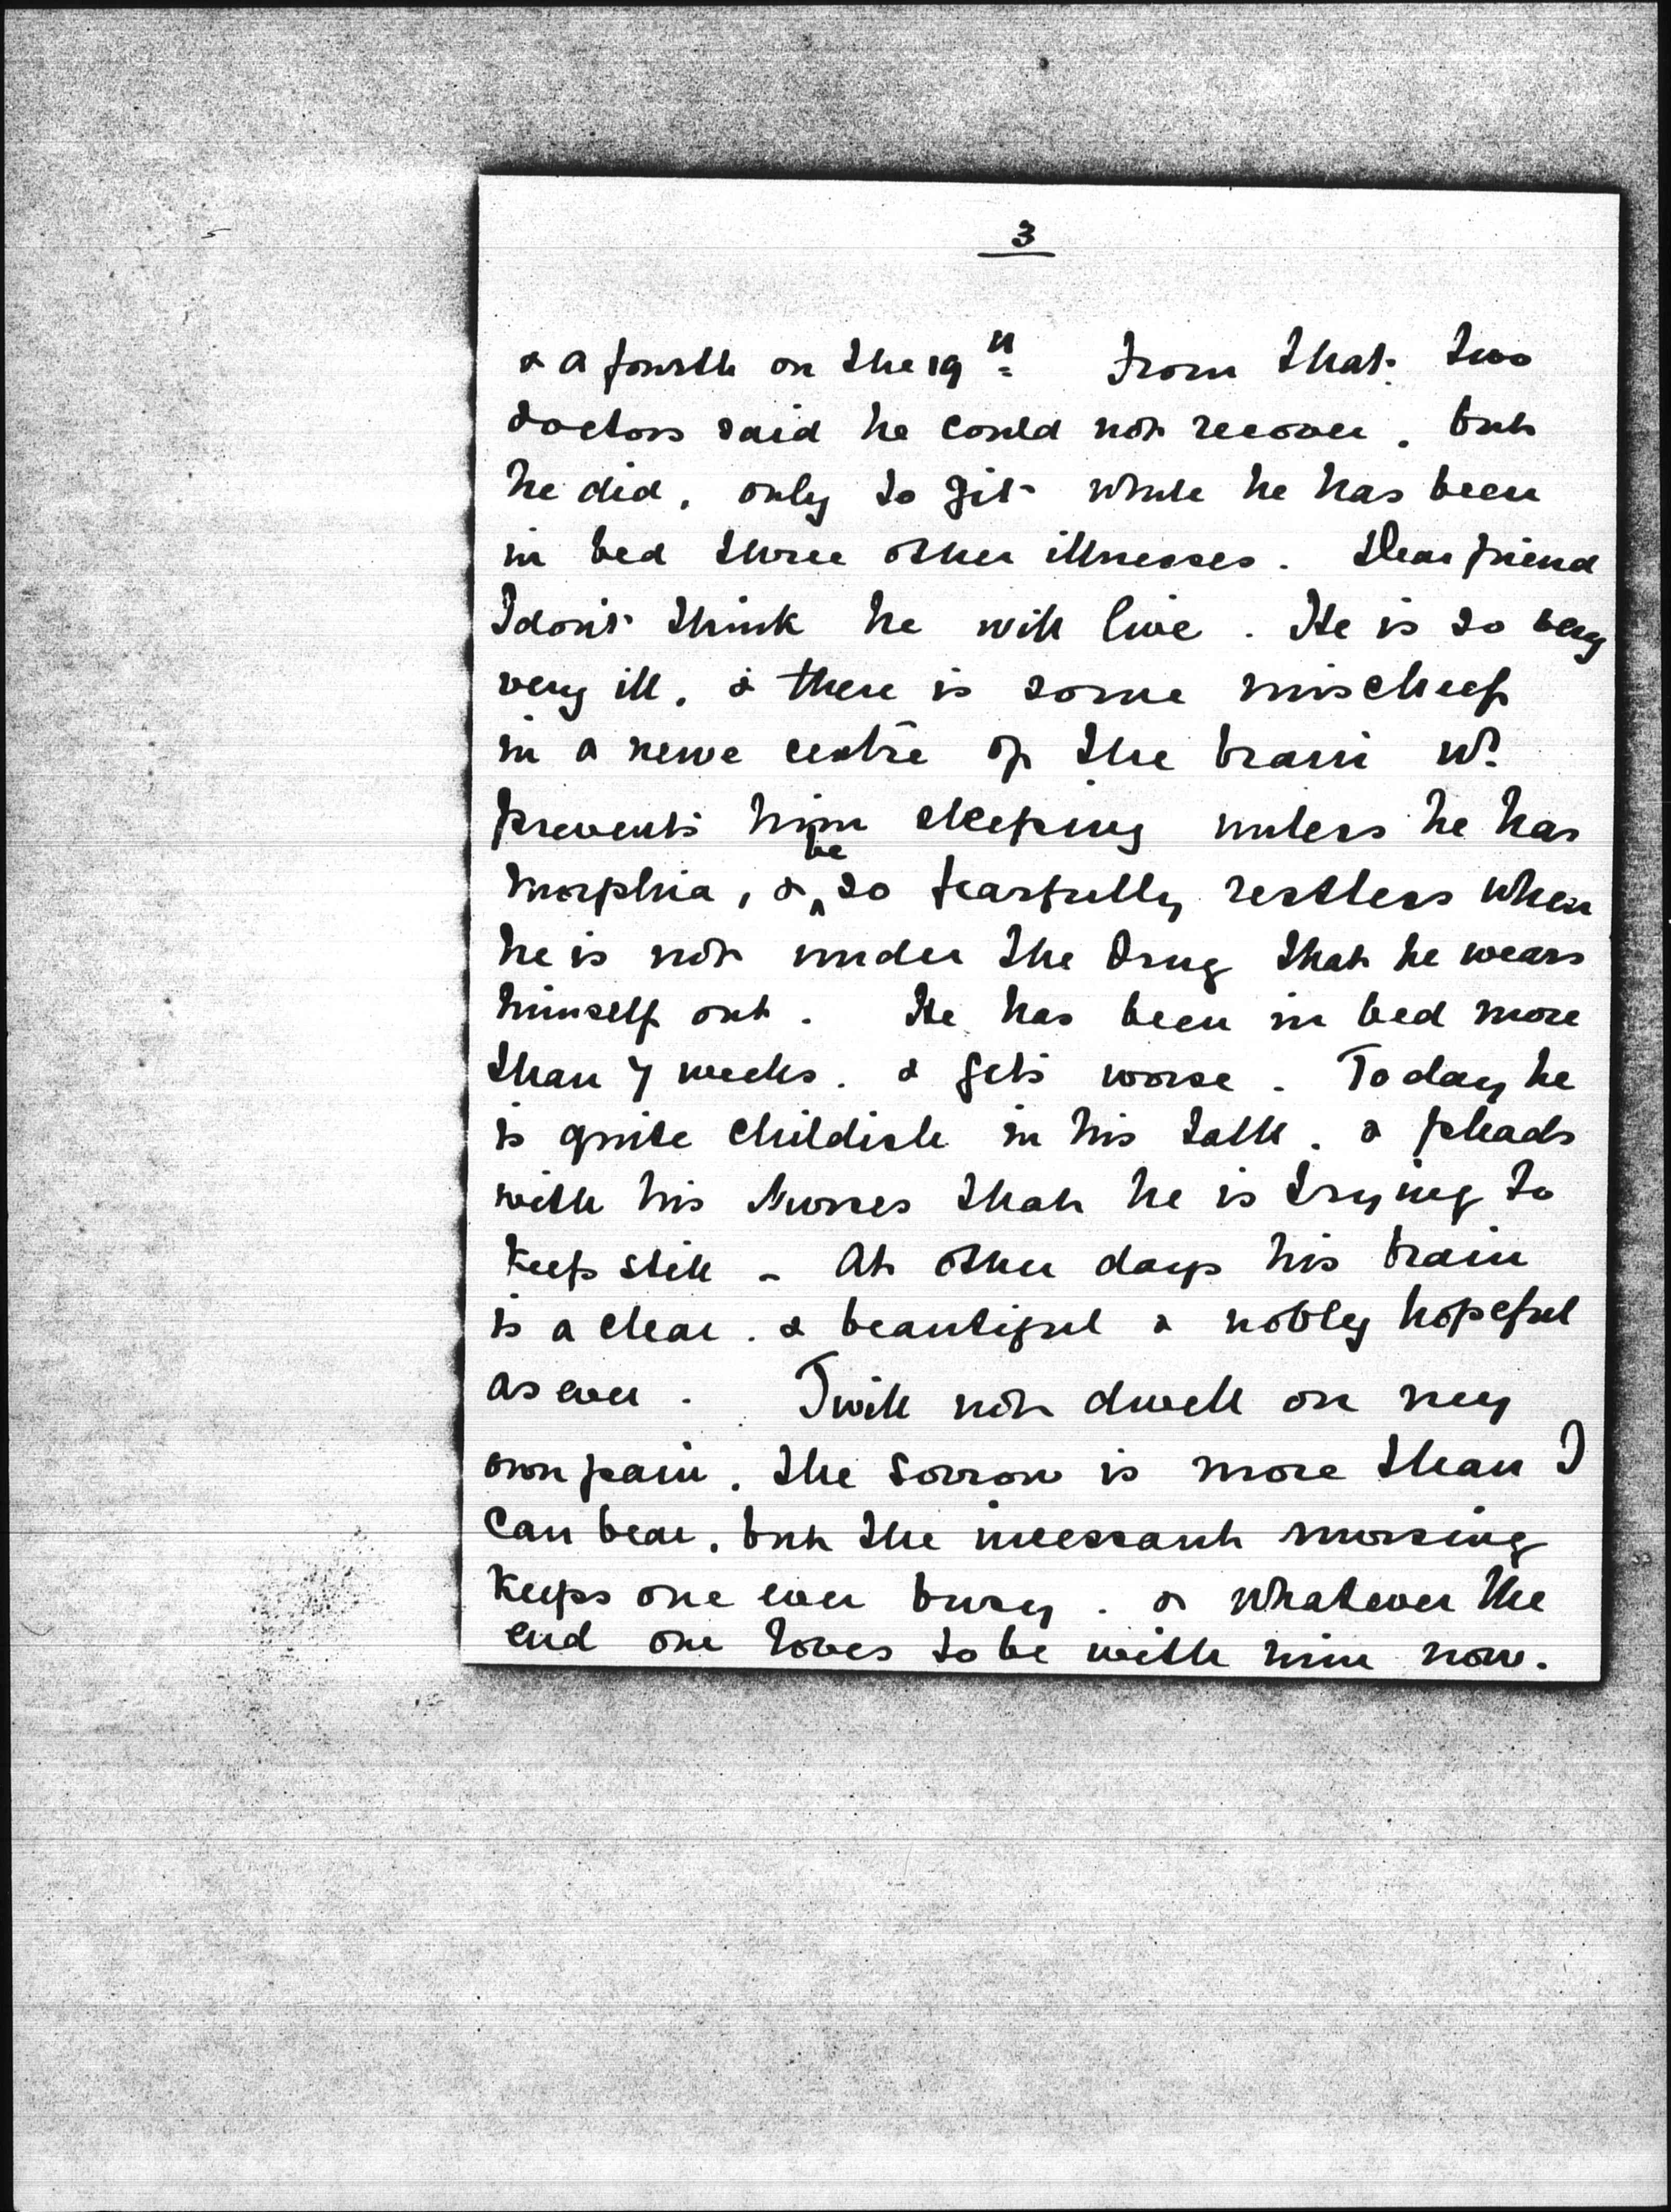 3
& a fourth on the 19th From that two
doctors said he could not recover. but
he did, only to git while he has been
in bed three other illnesses. Dear friend
I don't think he will live. He is so very
very ill, & there is some mischief
in a nerve centre of the brain wh.
prevents him sleeping unless he has
morphia, & he so fearfully restless when
he is not under the drug that he wears
himself out. He has been in bed more
than 7 weeks. & gets worse. Today he
is quite childish in his talk. & pleads
with his Nurses that he is trying to
keep still - At other days his brain
is a clear. & beautiful & nobly hopeful
as ever. I will not dwell on my
own pain. the sorrow is more than I
can bear, but the incessant nursing
keeps one ever busy. & whatever the
end one loves to be with him now.